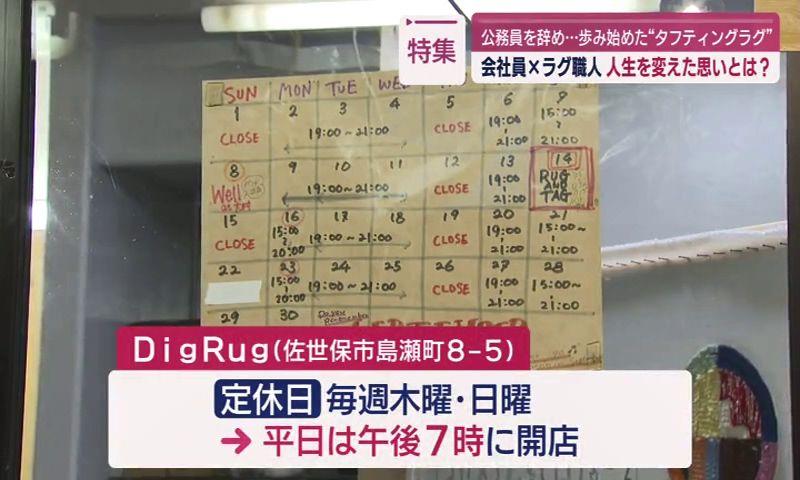 特集
公務員を辞め…歩み始めた“タフティングラグ”
会社員×ラグ職人 人生を変えた思いとは？
SUN MON TUE WED
1 2 3 4 5 6 7
CLOSE 19:00~21:00 CLOSE 19:00~21:00 15:00~21:00
8 9 10 11 12 13 14
Well 19:00~21:00 CLOSE 19:00~21:00 RUG AND TAG
15 16 17 18 19 20 21
CLOSE 15:00~20:00 19:00~21:00 CLOSE 19:00~21:00 15:00~21:00
22 23 24 25 26 27 28
15:00~20:00 19:00~21:00 CLOSE 19:00~21:00 15:00~21:00
29 30
DigRug(佐世保市島瀬町8-5)
定休日 毎週木曜・日曜
→ 平日は午後7時に開店